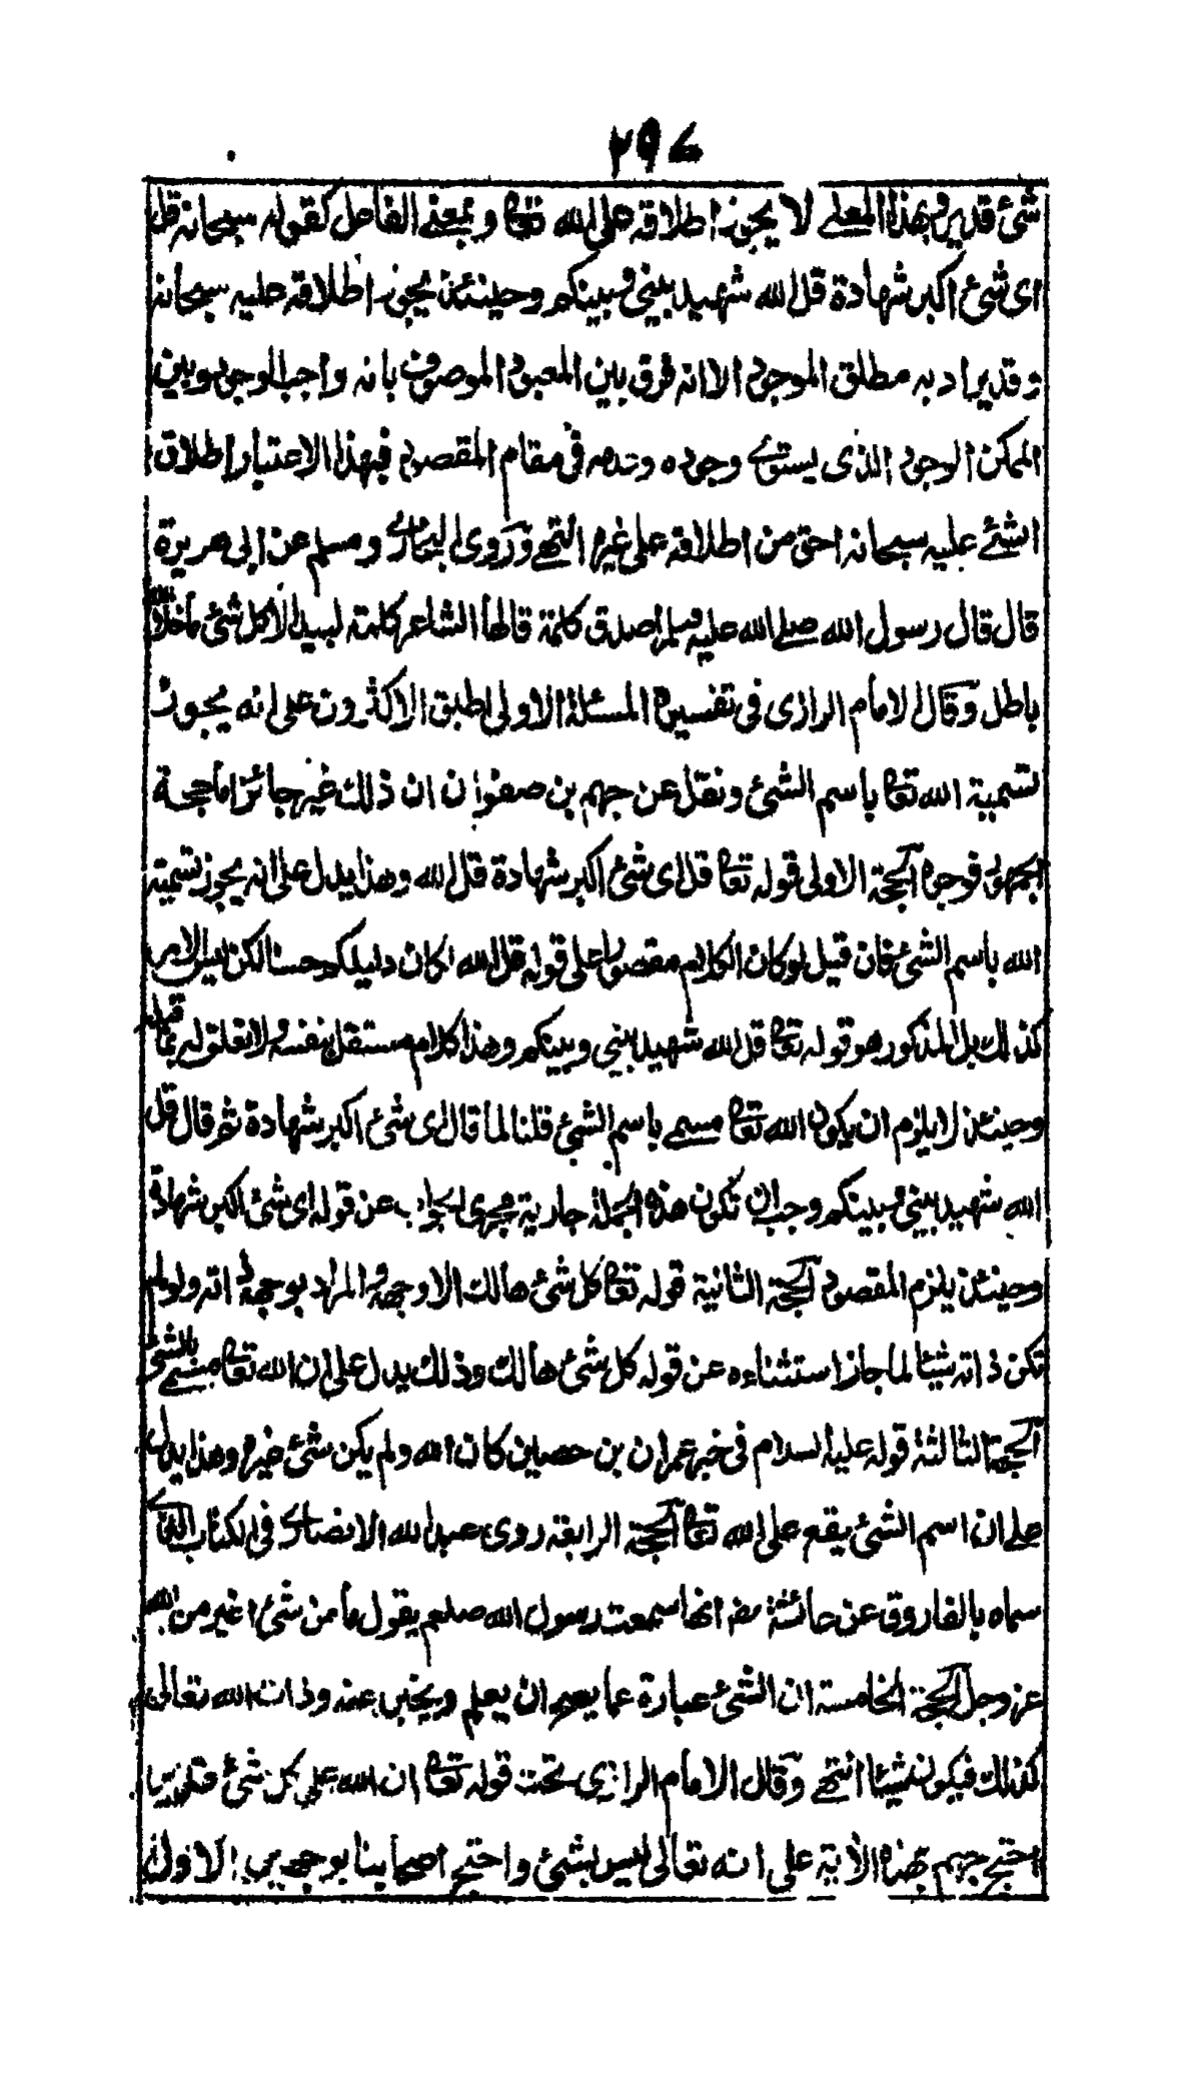 ٢٩٧
شئ قدير وبهذا المعنے لا يجوز اطلاقه على الله تعا وبمعنے الفاعل كقوله سبحانه قل
اى شئ اكبر شهادة قل الله شهيد بينى وبينكم وحينئذ يجوز اطلاقه عليه سبحانه
وقد يراد به مطلق الموجود الا انه فرق بين المعبود الموصوف بانه واجب الوجود وبين
الممكن الوجود الذى يستوے وجوده وعدمه فى مقام المقصود فبهذا الاعتبار اطلاق
الشئے عليه سبحانه احق من اطلاقه على غيره انتهے وروى البخارے ومسلم عن ابى هريرة
قال قال رسول الله صلے الله عليه وسلم اصدق كلمة قالها الشاعر كلمة لبيد الا كل شئ ما خلا الله
باطل وقال الامام الرازى فى تفسيره المسئلة الاولى اطبق الاكثرون على انه يجوز
تسمية الله تعا باسم الشئ ونقل عن جهم بن صفوان ان ذلك غير جائز اما حجة
الجمهور فوجوه الحجة الاولى قوله تعا قل اى شئ اكبر شهادة قل الله وهذا يدل على انه يجوز تسمية
الله باسم الشئ فان قيل لو كان الكلام مقصورا على قوله قل الله لكان دليلكم حسنا لكن ليس الامر
كذلك بل المذكور هو قوله تعا قل الله شهيد بينى وبينكم وهذا كلام مستقل بنفسه ولا تعلق له بما قبله
وحينئذ لا يلزم ان يكون الله تعا مسمے باسم الشئ قلنا لما قال اى شئ اكبر شهادة ثم قال قل
الله شهيد بينى وبينكم وجب ان تكون هذه الجملة جارية مجرى الجواب عن قوله اى شئ اكبر شهادة
وحينئذ يلزم المقصود الحجة الثانية قوله تعا كل شئ هالك الا وجهه والمراد بوجهه ذاته ولو لم
تكن ذاته شيئا لما جاز استثناءه عن قوله كل شئ هالك وذلك يدل على ان الله تعا مسمے بالشئ
الحجة الثالثة قوله عليه السلام فى خبر عمران بن حصين كان الله ولم يكن شئ غيره وهذا يدل
على ان اسم الشئ يقع على الله تعا الحجة الرابعة روى عبد الله الانصارى فى الكتاب الذے
سماه بالفاروق عن عائشة رضـ انها سمعت رسول الله صلعم يقول ما من شئ اغير من الله
عز وجل الحجة الخامسة ان الشئ عبارة عما يصح ان يعلم ويخبر عنه وذات الله تعالى
كذلك فيكون شيئا انتهے وقال الامام الرازى تحت قوله تعا ان الله على كل شئ قدير
احتج جهم بهذه الاية على انه تعالى ليس بشئ واحتج اصحابنا بوجهين الاول